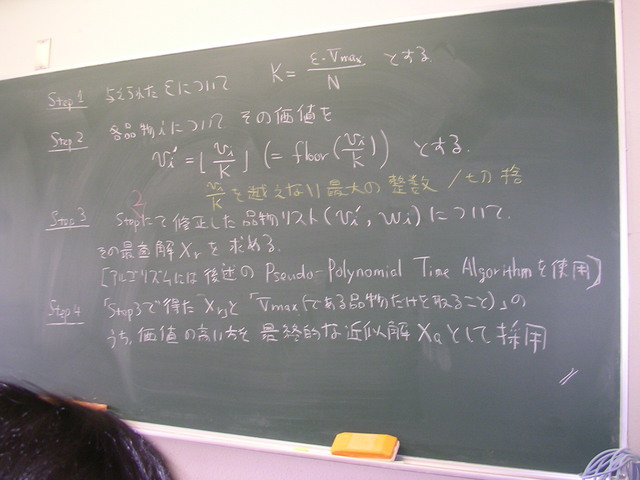 Step 1 与えられた εについて K = ε・Vmax / N とする.
Step 2 各品物 i について その価値を
vi' = ⌊ vi / K ⌋ (= floor( vi / K )) とする.
vi / K を越えない最大の整数 / 切捨
Step 3 Step 2 にて修正した品物リスト (vi', wi) について.
その最適解 Xr を求める.
[アルゴリズムには後述の Pseudo-Polynomial Time Algorithm を使用]
Step 4 「Step 3で得た Xr」と「Vmax (である品物だけを取ること)」の
うち, 価値の高い方を 最終的な近似解 Xa として採用
//